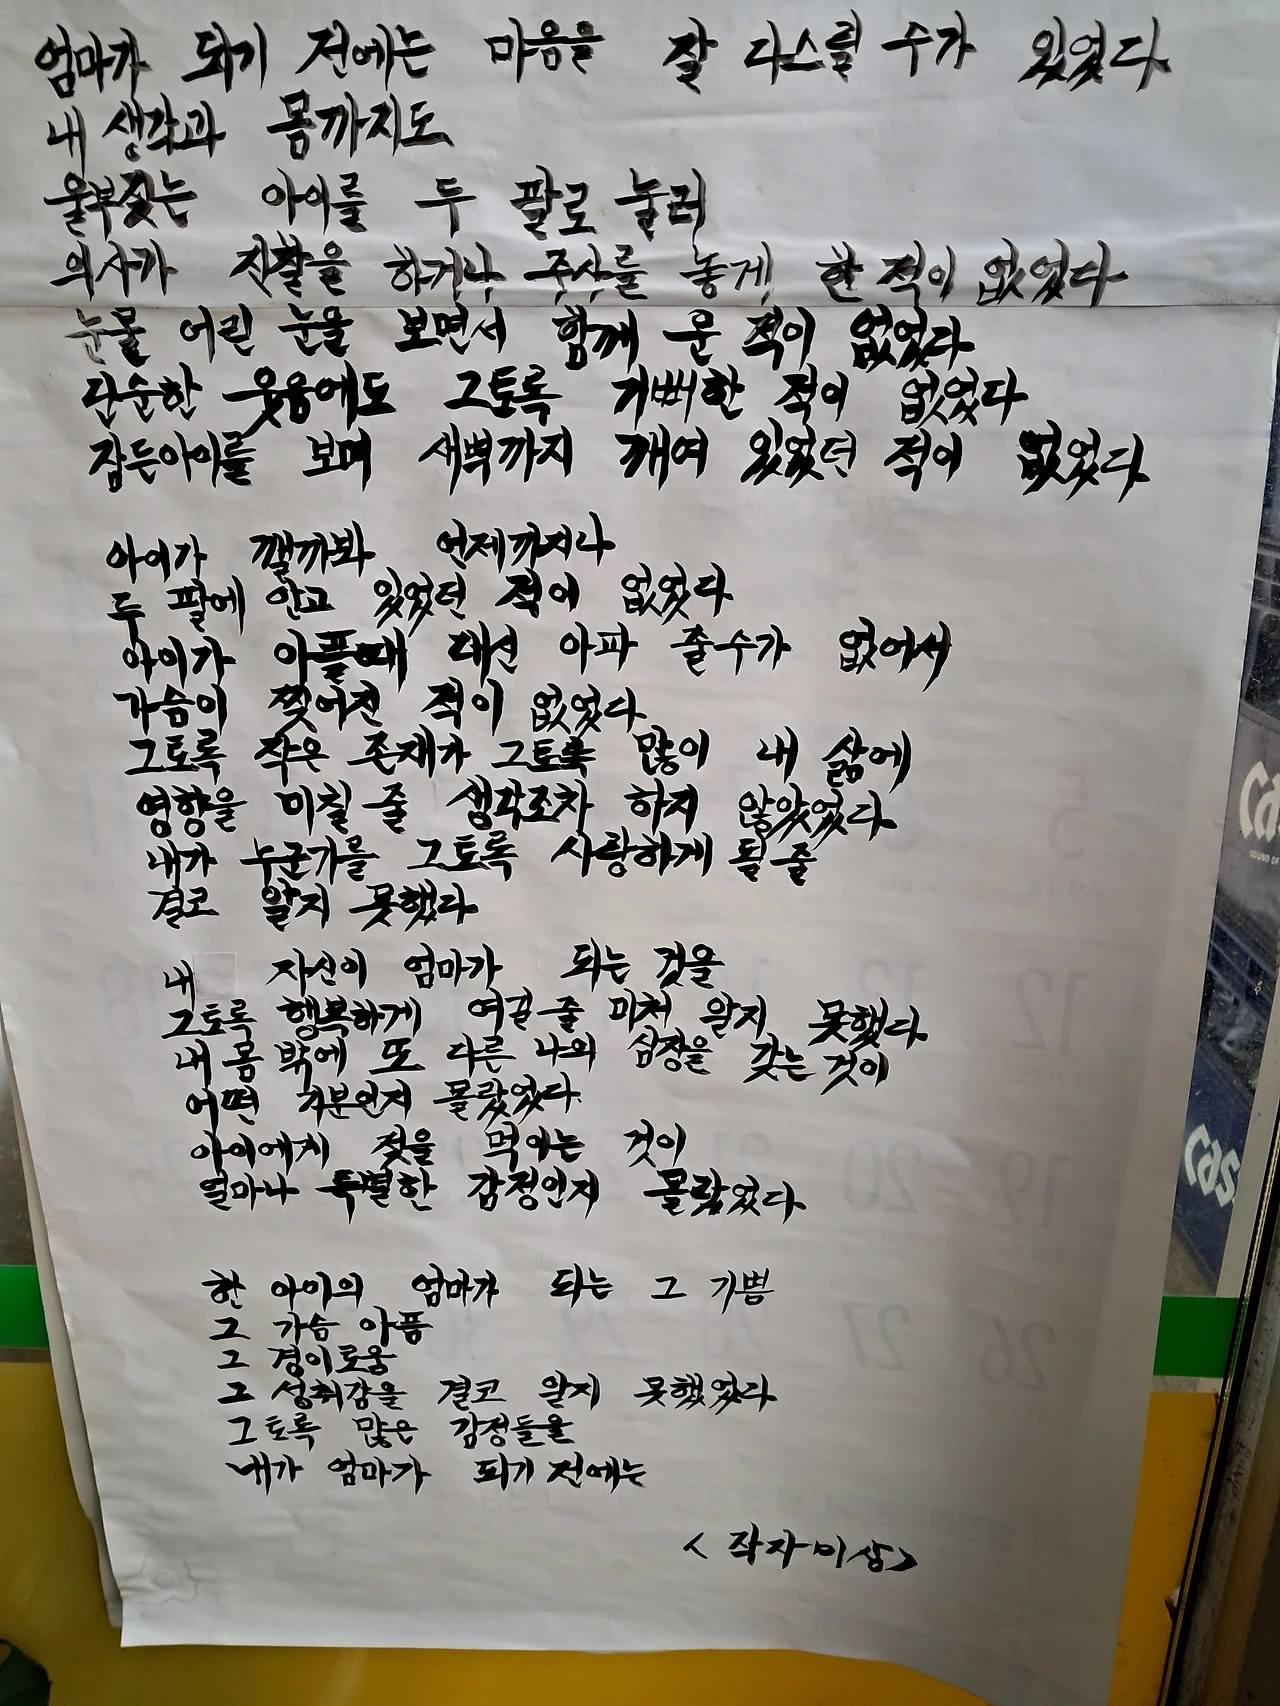 엄마가 되기 전에는 마음을 잘 다스릴 수가 있었다
내 생각과 몸까지도
울부짖는 아이를 두 팔로 눌러
의사가 진찰을 하거나 주사를 놓게 한 적이 없었다
눈물 어린 눈을 보면서 함께 운 적이 없었다
단순한 웃음에도 그토록 기뻐한 적이 없었다
잠든아이를 보며 새벽까지 깨여 있었던 적이 없었다
아이가 깰까봐 언제까지나
두 팔에 안고 있었던 적이 없었다
아이가 아플때 대신 아파 줄수가 없어서
가슴이 찢어진 적이 없었다
그토록 작은 존재가 그토록 많이 내 삶에
영향을 미칠 줄 생각조차 하지 않았었다
내가 누군가를 그토록 사랑하게 될 줄
결코 알지 못했다
내 자신이 엄마가 되는 것을
그토록 행복하게 여길 줄 미처 알지 못했다
내 몸 밖에 또 다른 나의 심장을 갖는 것이
어떤 기분인지 몰랐었다
아이에게 젖을 먹이는 것이
얼마나 특별한 감정인지 몰랐었다
한 아이의 엄마가 되는 그 기쁨
그 가슴 아픔
그 경이로움
그 성취감을 결코 알지 못했었다
그토록 많은 감정들을
내가 엄마가 되기 전에는
<작자미상>
5
12
19
20
26
27
Cas